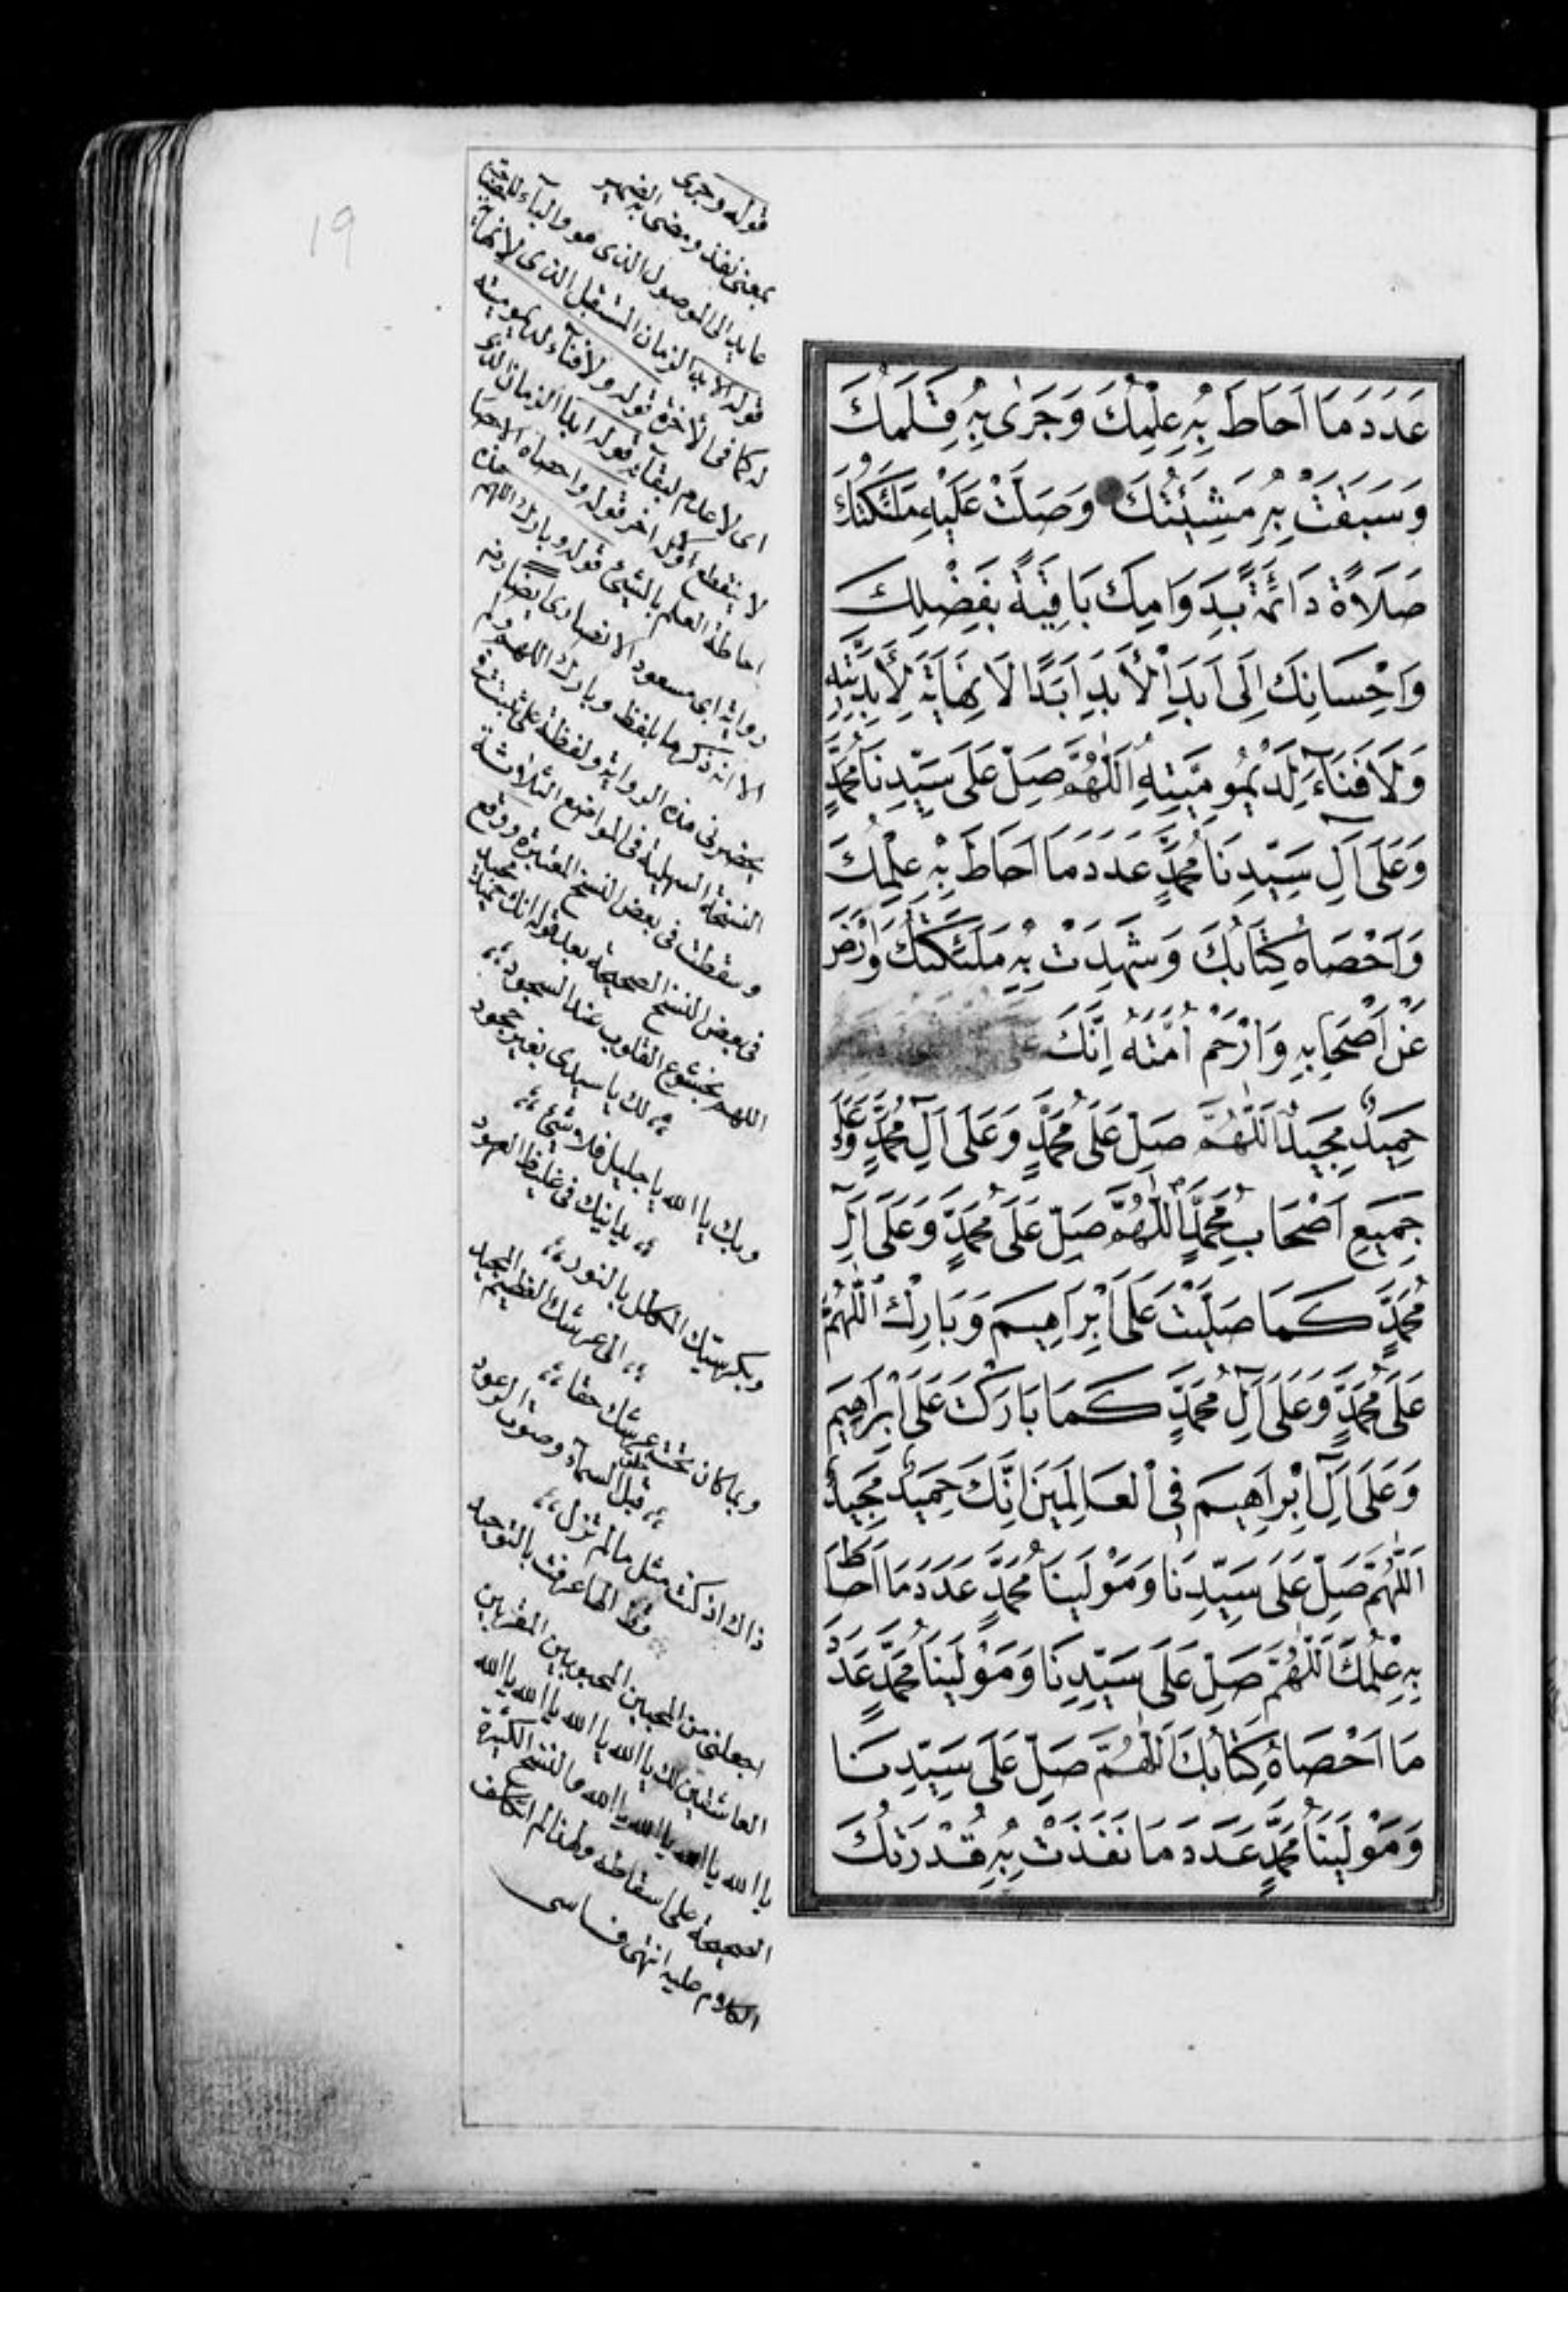 عَدَدَ مَا اَحَاطَ بِهِ عِلْمُكَ وَجَرٰى بِهِ قَلَمُكَ
وَسَبَقَتْ بِهِ مَشِيْئَتُكَ وَصَلَّتْ عَلَيْهِ مَلٰئِكَتُكَ
صَلَاةً دَائِمَةً بِدَوَامِكَ بَاقِيَةً بِفَضْلِكَ
وَاِحْسَانِكَ اِلَى اَبَدِ الْاَبَدِ اَبَدًا لَا نِهَايَةَ لِاَبَدِيَّتِهِ
وَلَا فَنَآءَ لِدَيْمُومِيَّتِهِ اَللّٰهُمَّ صَلِّ عَلَى سَيِّدِنَا مُحَمَّدٍ
وَعَلَى آلِ سَيِّدِنَا مُحَمَّدٍ عَدَدَ مَا اَحَاطَ بِهِ عِلْمُكَ
وَاَحْصَاهُ كِتَابُكَ وَشَهِدَتْ بِهِ مَلٰئِكَتُكَ وَارْضَ
عَنْ اَصْحَابِهِ وَارْحَمْ اُمَّتَهُ اِنَّكَ
حَمِيدٌ مَجِيدٌ اَللّٰهُمَّ صَلِّ عَلَى مُحَمَّدٍ وَعَلَى آلِ مُحَمَّدٍ وَعَلَى
جَمِيعِ اَصْحَابِ مُحَمَّدٍ اَللّٰهُمَّ صَلِّ عَلَى مُحَمَّدٍ وَعَلَى آلِ
مُحَمَّدٍ كَمَا صَلَّيْتَ عَلَى اِبْرَاهِيمَ وَبَارِكْ اَللّٰهُمَّ
عَلَى مُحَمَّدٍ وَعَلَى آلِ مُحَمَّدٍ كَمَا بَارَكْتَ عَلَى اِبْرَاهِيمَ
وَعَلَى آلِ اِبْرَاهِيمَ فِى الْعَالَمِينَ اِنَّكَ حَمِيدٌ مَجِيدٌ
اَللّٰهُمَّ صَلِّ عَلَى سَيِّدِنَا وَمَوْلَينَا مُحَمَّدٍ عَدَدَ مَا اَحَاطَ
بِهِ عِلْمُكَ اَللّٰهُمَّ صَلِّ عَلَى سَيِّدِنَا وَمَوْلَينَا مُحَمَّدٍ عَدَدَ
مَا اَحْصَاهُ كِتَابُكَ اَللّٰهُمَّ صَلِّ عَلَى سَيِّدِنَا
وَمَوْلَينَا مُحَمَّدٍ عَدَدَ مَا نَفَذَتْ بِهِ قُدْرَتُكَ
قوله وجرى
بمعنى نفذ ومضى به الضمير
عايد الى الموصول الذى هو ما والباء
قوله الابد الزمان المستقبل الذى لا نهاية
له كما فى الآخرة قوله ولا فناء لديموميته
اى لا عدم لبقائه قوله ابدا الزمان الذى
لا ينقطع اوله آخر قوله واحصاه الاحصاء
احاطة العلم بالشئ قوله وبارك اللهم هذه
رواية ابى مسعود الانصارى ايضا
الا انه ذكرها بلفظ وبارك اللهم ولم
يحضرنى هذه الرواية ولفظة على
النسخة السهلية فى المواضع الثلاثة
وسقطت فى بعض النسخ المعتبرة ووقع
فى بعض النسخ الصحيحة بعد قوله انك حميد مجيد
اللهم بخشوع القلوب عند السجود
لك يا سيدى بغير جحود
وبك يا الله يا جليل فلا شئ
يدانيك فى غليظ العهود
وبكرسيك المكلل بالنور
الى عرشك العظيم المجيد
وبما كان تحت عرشك حقا
قبل خلق السماء وصوت الرعود
ذاك اذ كنت مثل ما لم تزل
الها عرفت بالتوحيد
اجعلنى من المحبين المحبوبين المقربين
العاشقين لك يا الله يا الله يا الله يا الله
يا الله يا الله يا الله يا الله والنسخ الكثيرة
الصحيحة على اسقاطه ولهذا لم اتكلف
الكلام عليه انتهى فاسى
19